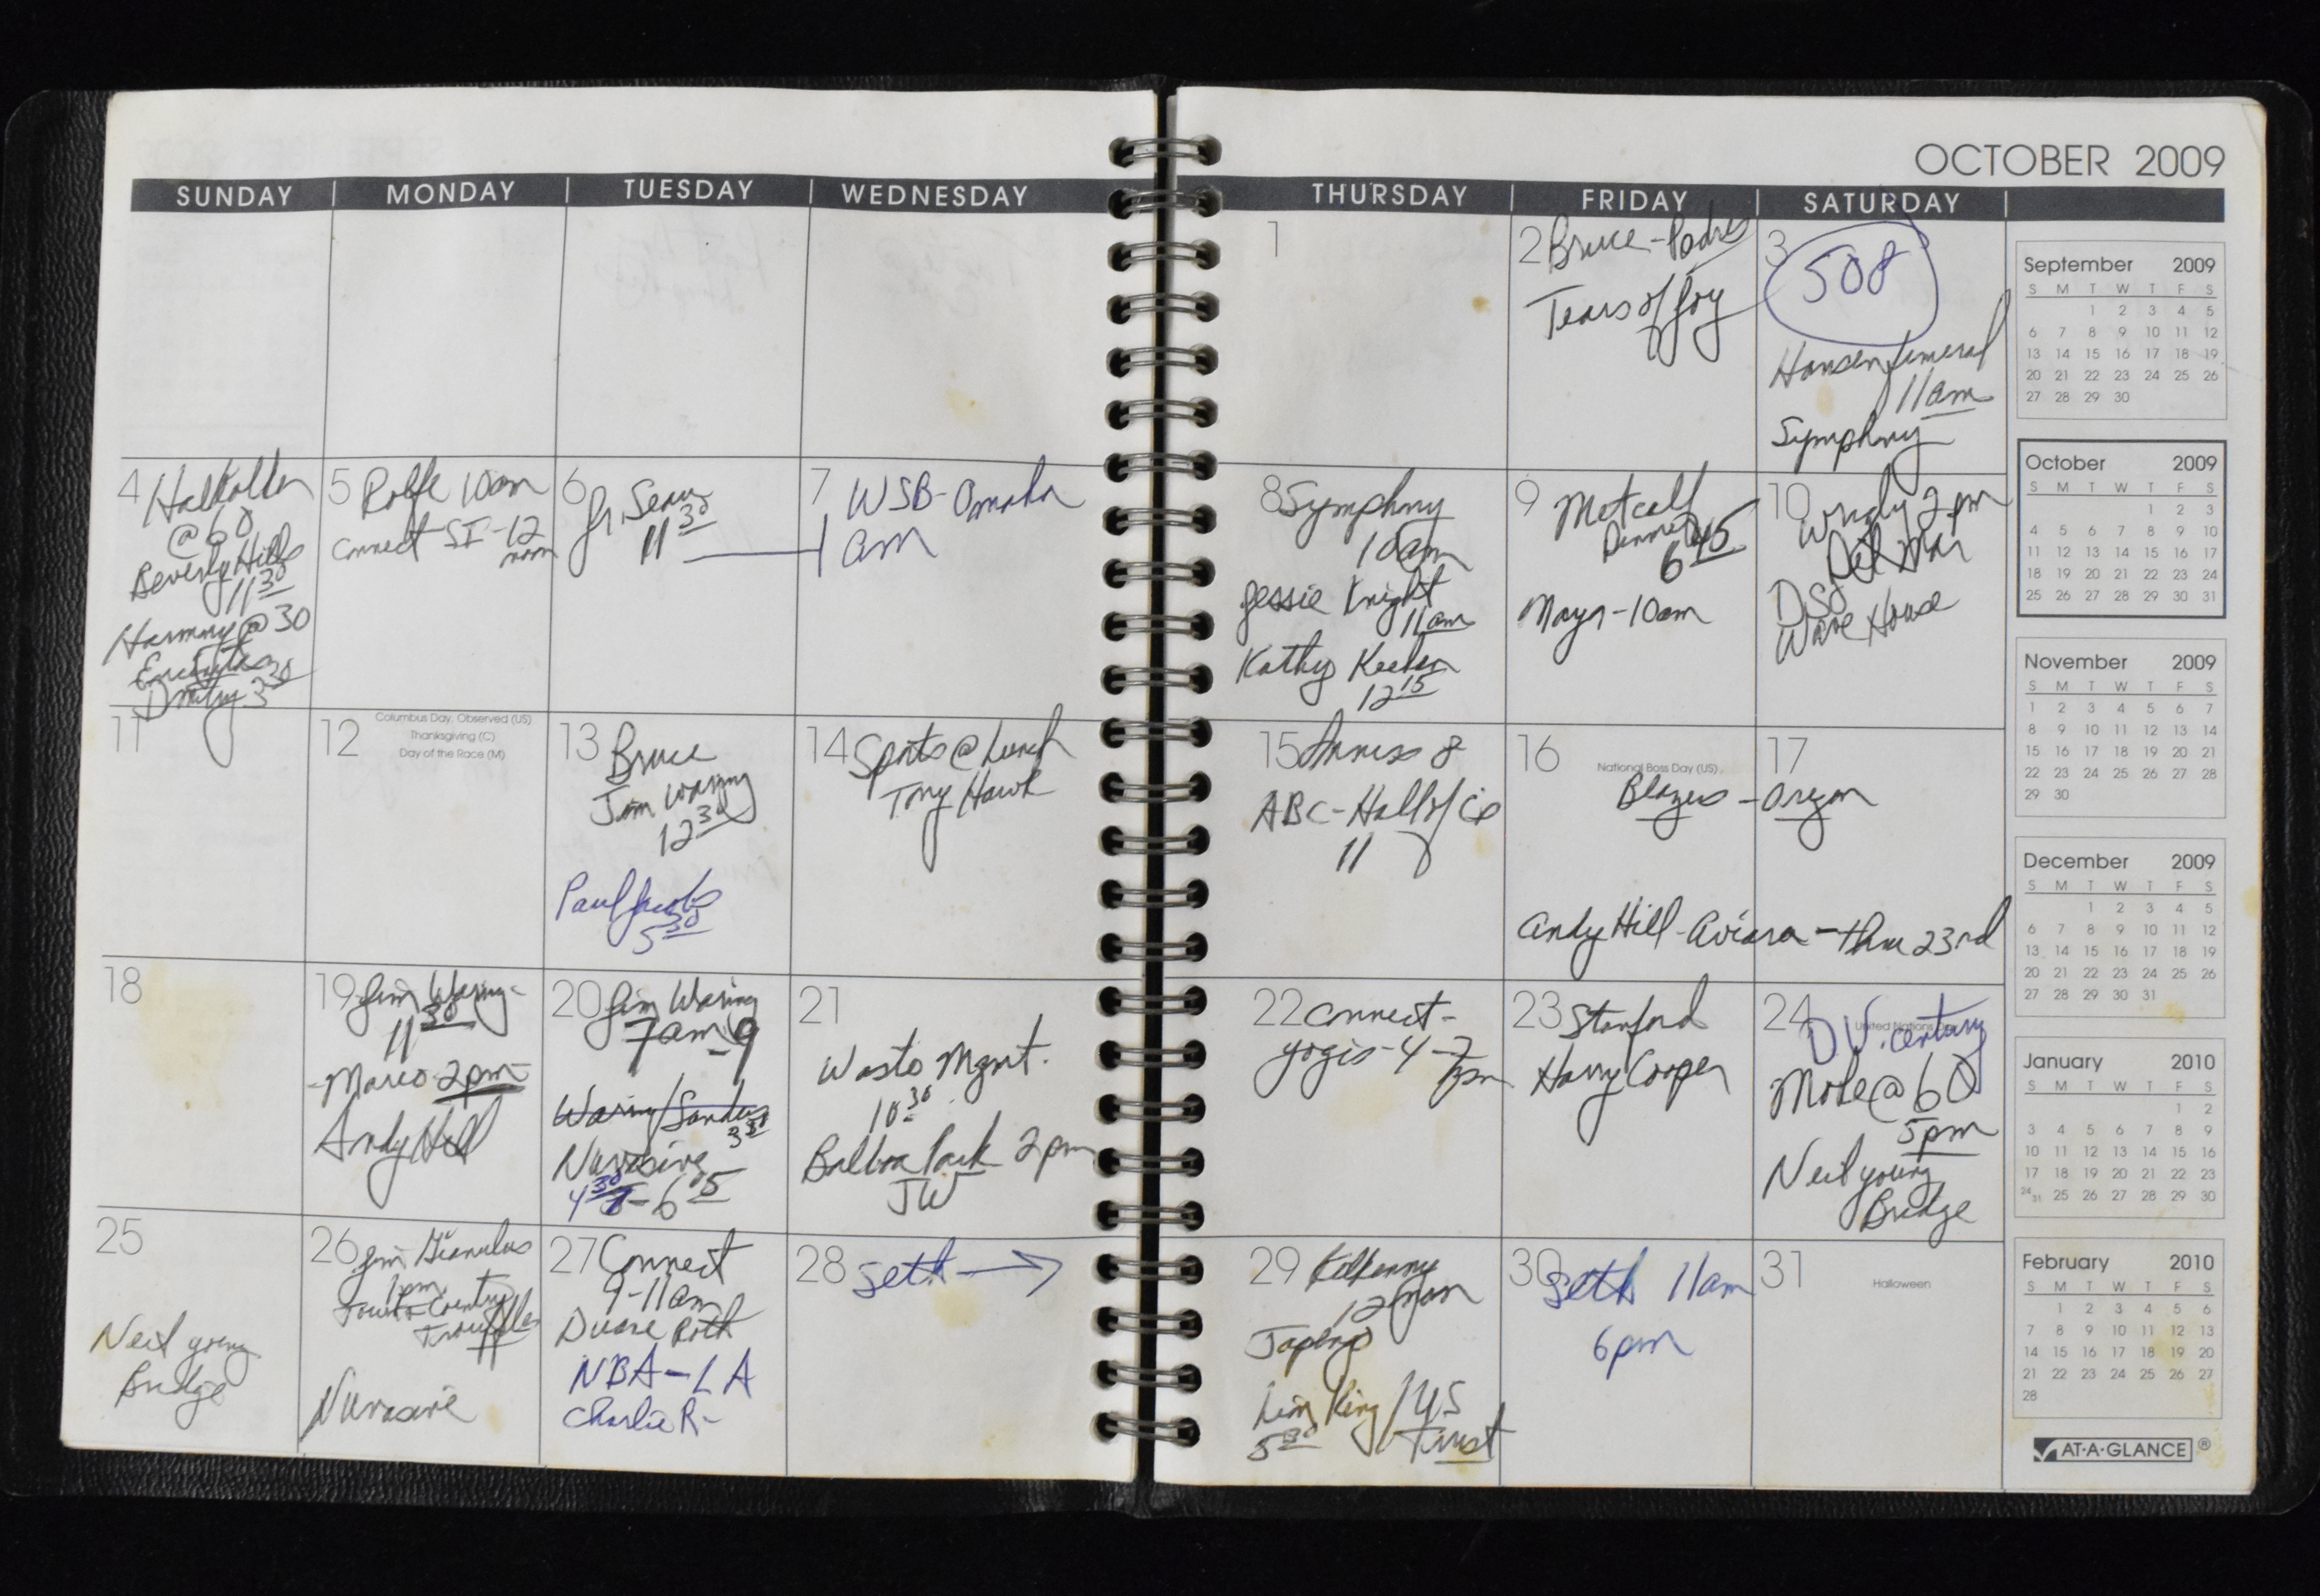 OCTOBER 2009
SUNDAY MONDAY TUESDAY WEDNESDAY THURSDAY FRIDAY SATURDAY
1
2 Bruce - Padres
Tears of Joy
3
508
Hansen funeral
11am
Symphony
4
@ 60
Beverly Hills
11 30
Harmony @ 30
Encinitas
Dmitry 3 30
5 Rolfe 10am
Connect SI - 12
noon
6
Jr. Seau
11 30
7 WSB - Omaha
am
8 Symphony
10am
Jessie Knight
11am
Kathy Keehan
12 15
9 Metcalf
Dinner
6 45
Mayor - 10am
10
2pm
Del Mar
DSO
Wave House
11
12
Columbus Day, Observed (US)
Thanksgiving (C)
Day of the Race (M)
13 Bruce
Jim Waring
12 30
Paul Jacobs
5 30
14 Sports @ Lunch
Tony Hawk
15 8
ABC - Hall of
11
16
National Boss Day (US)
17
Blazers - Oregon
Andy Hill - Aviara - thru 23rd
18
19 Jim Waring -
11 30
- Marco 2pm
Andy Hill
20 Jim Waring
7am - 9
Waring/Sanders
3 30
Nuvasive
4 30 - 6 15
21
Waste Mgmt.
10 30
Balboa Park 2pm
JW
22 Connect -
yogis - 4 - 7
pm
23 Stanford
Harry Cooper
24
United Nations Day
D.V. Century
Mole @ 60
5pm
Neil Young
Bridge
25
Neil Young
Bridge
26 Jim Gianulus
1pm
Town & Country
Nuvasive
27 Connect
9-11am
Duane Roth
NBA - LA
Charlie R -
28 Seth →
29 Kilkenny
12
Japengo
King / US
5 30 Trust
30 Seth 11am
6pm
31
Halloween
September 2009
S M T W T F S
1 2 3 4 5
6 7 8 9 10 11 12
13 14 15 16 17 18 19
20 21 22 23 24 25 26
27 28 29 30
October 2009
S M T W T F S
1 2 3
4 5 6 7 8 9 10
11 12 13 14 15 16 17
18 19 20 21 22 23 24
25 26 27 28 29 30 31
November 2009
S M T W T F S
1 2 3 4 5 6 7
8 9 10 11 12 13 14
15 16 17 18 19 20 21
22 23 24 25 26 27 28
29 30
December 2009
S M T W T F S
1 2 3 4 5
6 7 8 9 10 11 12
13 14 15 16 17 18 19
20 21 22 23 24 25 26
27 28 29 30 31
January 2010
S M T W T F S
1 2
3 4 5 6 7 8 9
10 11 12 13 14 15 16
17 18 19 20 21 22 23
24/31 25 26 27 28 29 30
February 2010
S M T W T F S
1 2 3 4 5 6
7 8 9 10 11 12 13
14 15 16 17 18 19 20
21 22 23 24 25 26 27
28
AT-A-GLANCE®